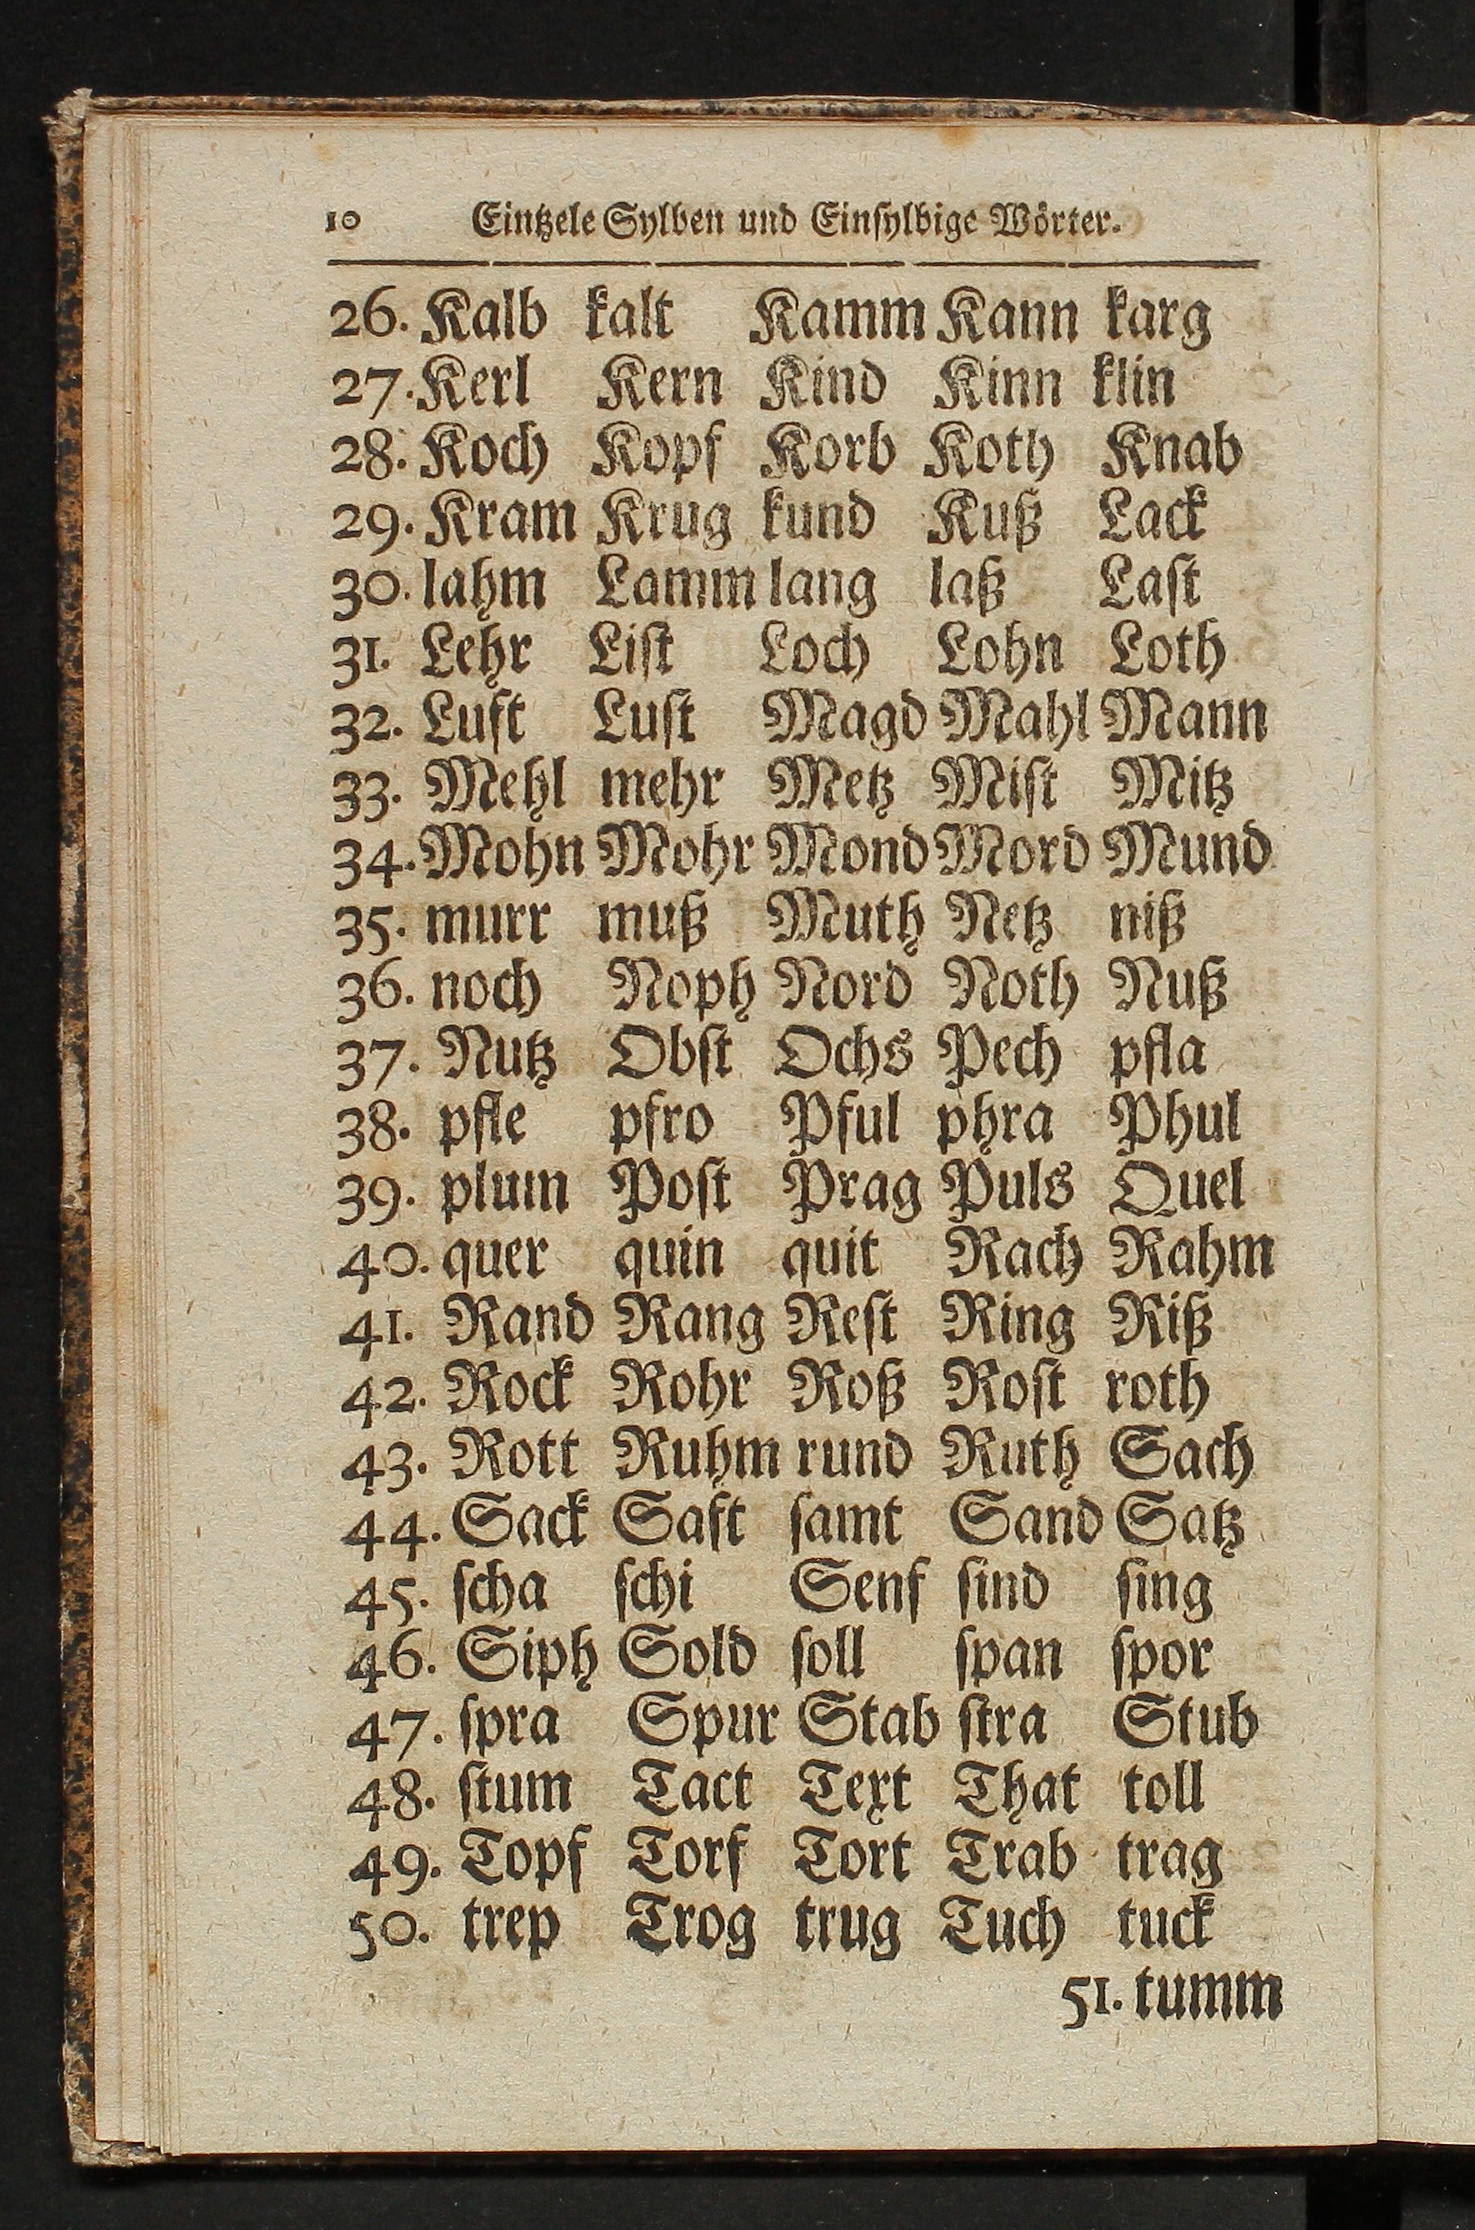 10 Eintzele Sylben und Einſylbige Wörter.
26. Kalb kalt Kamm Kann karg
27. Kerl Kern Kind Kinn klin
28. Koch Kopf Korb Koth Knab
29. Kram Krug kund Kuß Lack
30. lahm Lamm lang laß Laſt
31. Lehr Liſt Loch Lohn Loth
32. Luft Luſt Magd Mahl Mann
33. Mehl mehr Metz Miſt Mitz
34. Mohn Mohr Mond Mord Mund
35. murr muß Muth Netz niß
36. noch Noph Nord Noth Nuß
37. Nutz Obſt Ochs Pech pfla
38. pfle pfro Pful phra Phul
39. plum Poſt Prag Puls Quel
40. quer quin quit Rach Rahm
41. Rand Rang Reſt Ring Riß
42. Rock Rohr Roß Roſt roth
43. Rott Ruhm rund Ruth Sach
44. Sack Saft ſamt Sand Satz
45. ſcha ſchi Senf ſind ſing
46. Siph Sold ſoll ſpan ſpor
47. ſpra Spur Stab ſtra Stub
48. ſtum Tact Text That toll
49. Topf Torf Tort Trab trag
50. trep Trog trug Tuch tuck
51. tumm